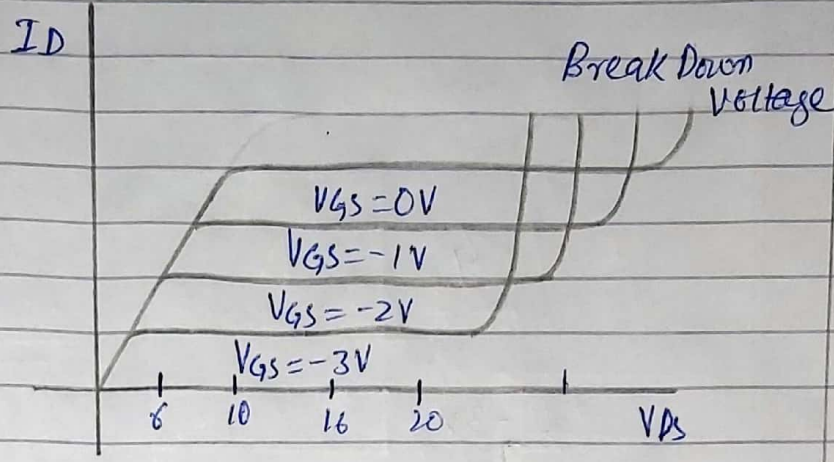 ID
Break Down
Voltage
VGS=0V
VGS=-1V
VGS=-2V
VGS=-3V
6 10 16 20 VDS